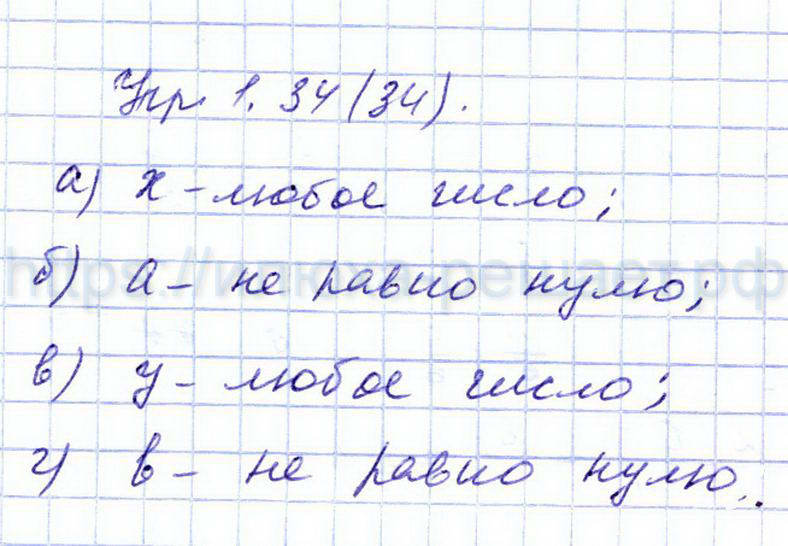 Упр. 1.34(34).
а) x - любое число;
б) a - не равно нулю;
https://илюха-решает.рф
в) y - любое число;
г) в - не равно нулю.